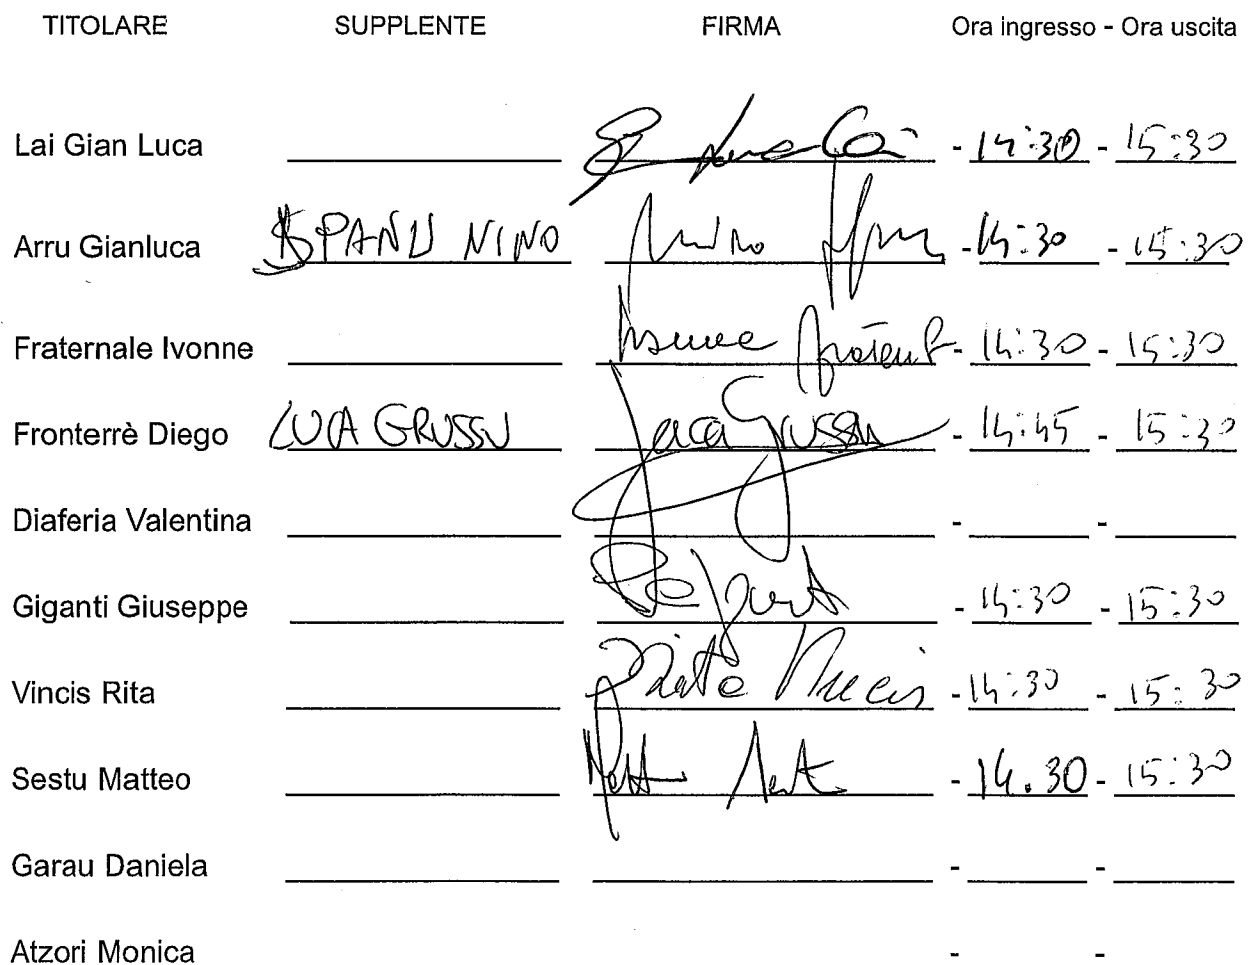 TITOLARE SUPPLENTE FIRMA Ora ingresso - Ora uscita
Lai Gian Luca - 14:30 - 15:30
Arru Gianluca SPANU NINO Nino - 14:30 - 15:30
Fraternale Ivonne - 14:30 - 15:30
Fronterrè Diego LUCA GRUSSU Luca Grussu - 14:45 - 15:30
Diaferia Valentina - -
Giganti Giuseppe - 14:30 - 15:30
Vincis Rita Rita Vincis - 14:30 - 15:30
Sestu Matteo - 14.30 - 15:30
Garau Daniela - -
Atzori Monica - -